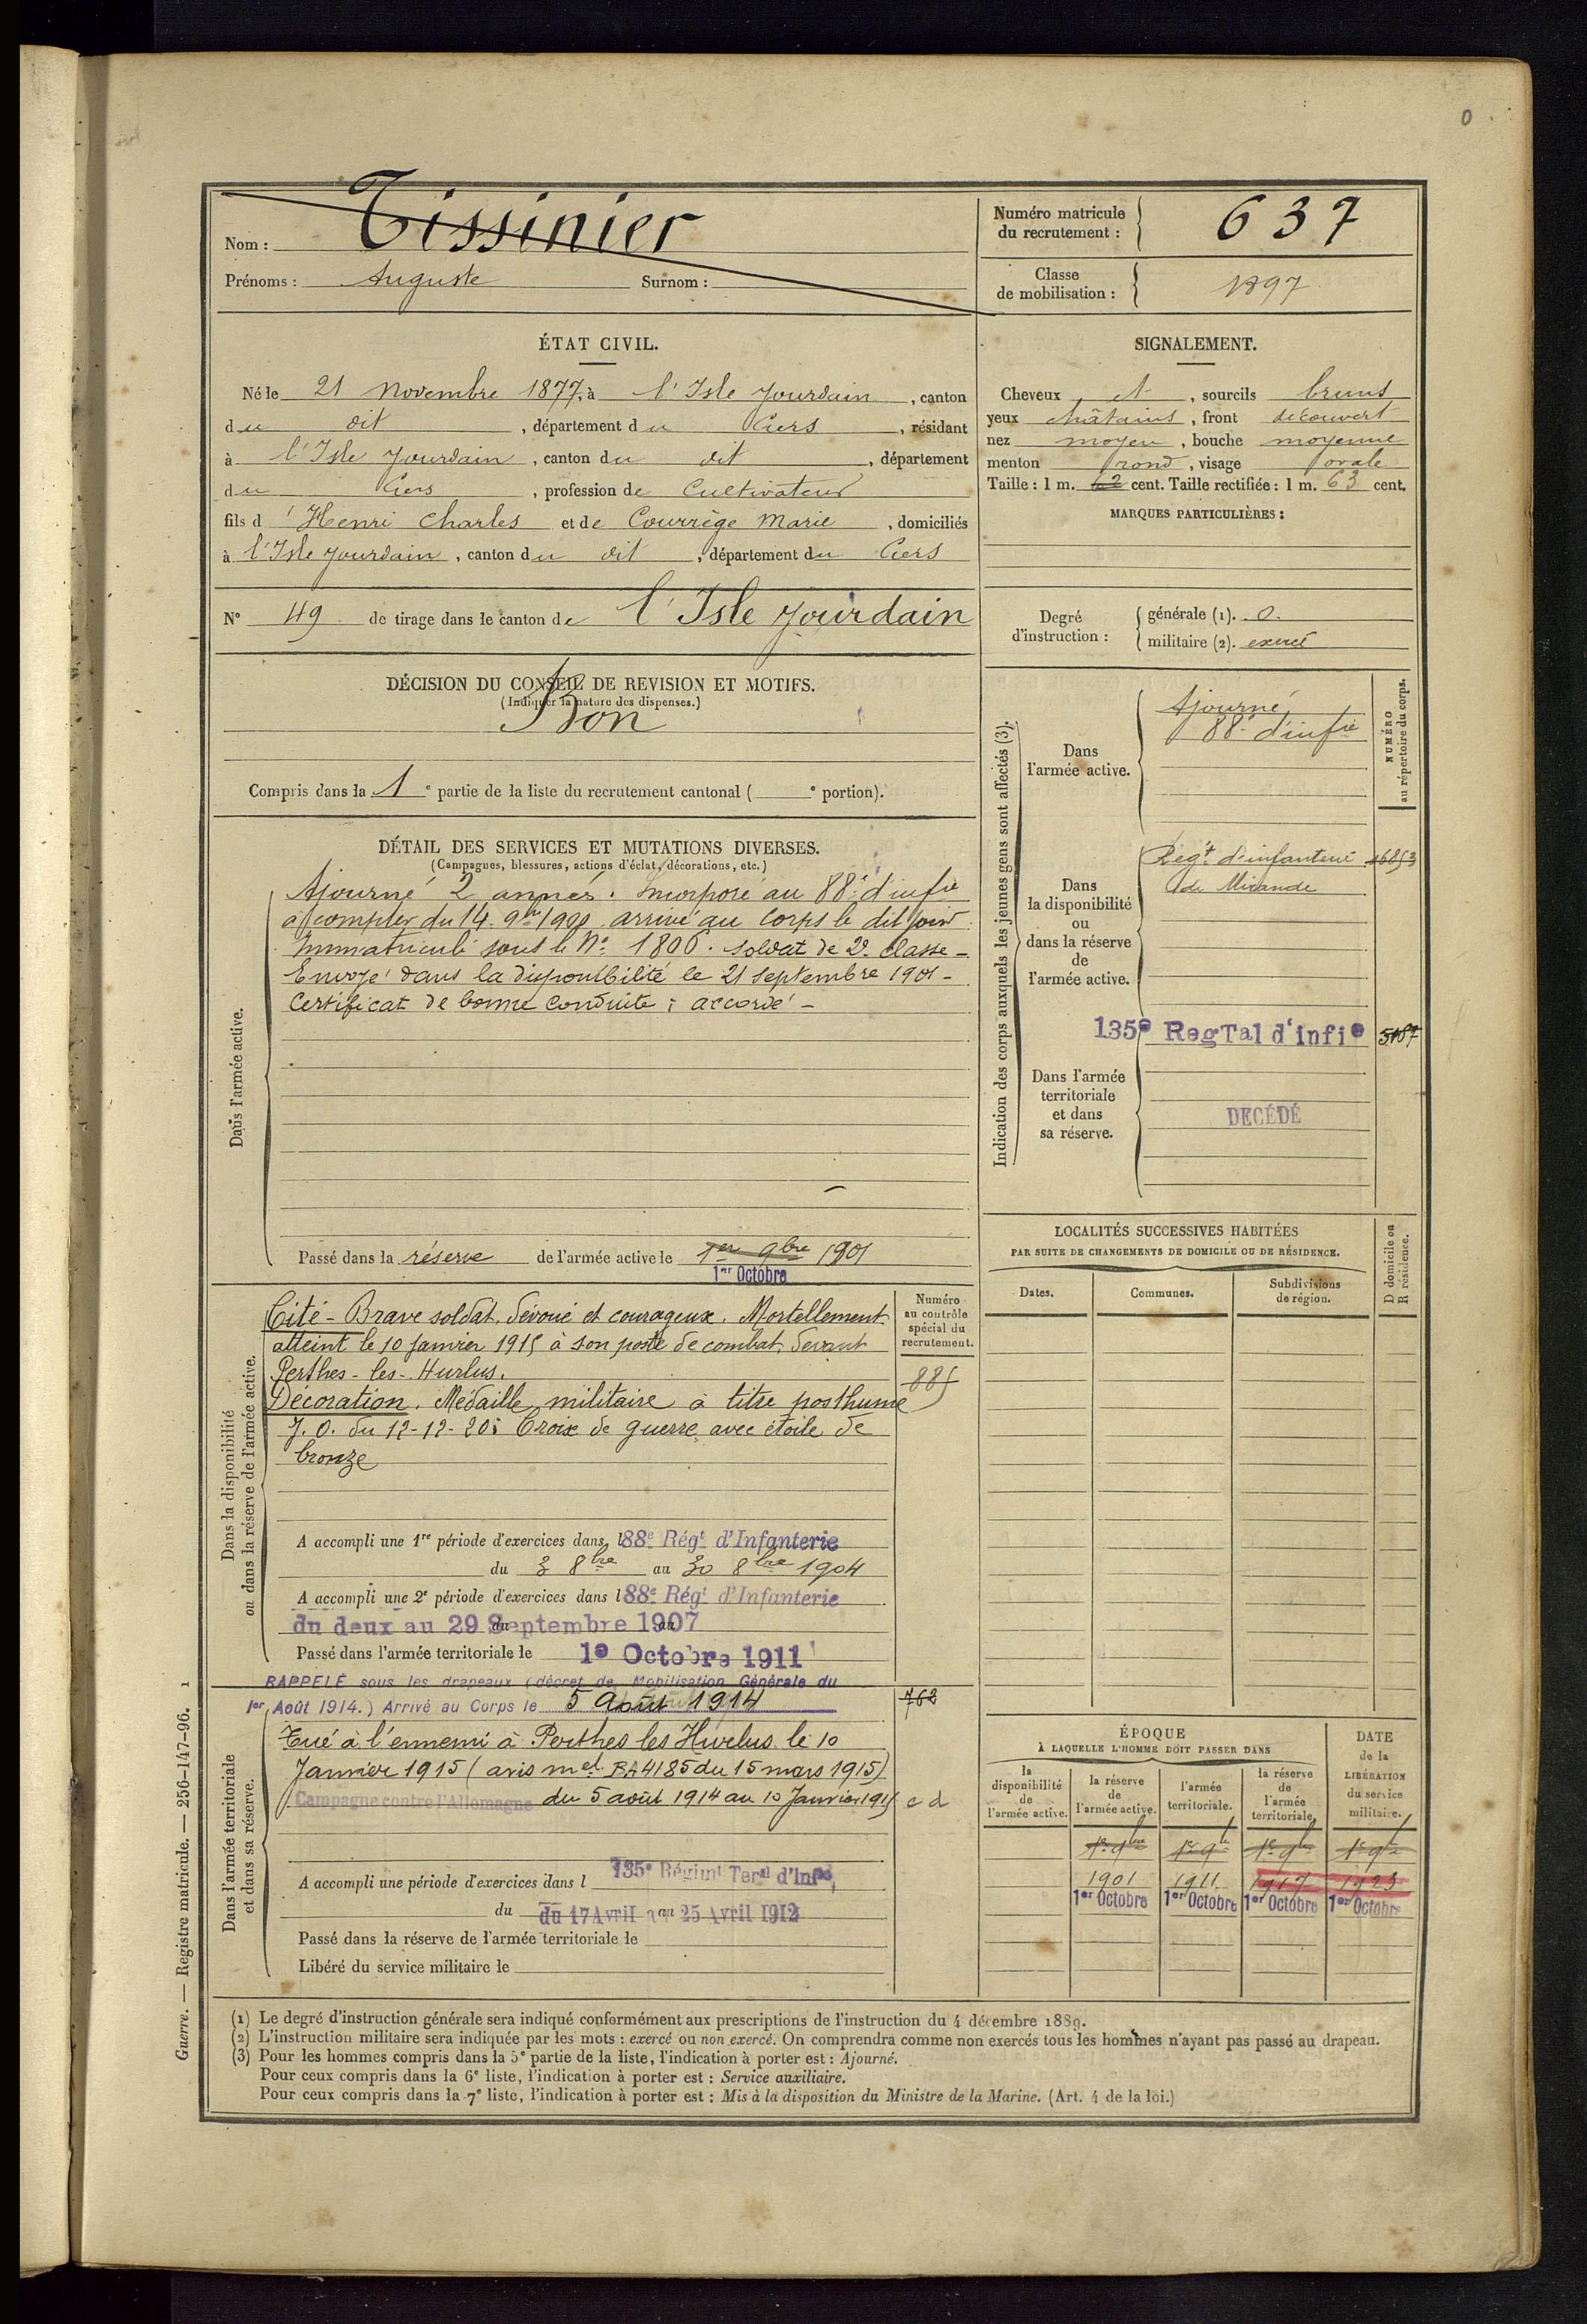 0
Nom : Tissinier
Prénoms : Auguste Surnom :
Numéro matricule du recrutement : 637
Classe de mobilisation : 1897
ÉTAT CIVIL.
Né le 21 Novembre 1877, à l'Isle Jourdain, canton
du dit, département du Gers, résidant
à l'Isle Jourdain, canton du dit, département
du Gers, profession de Cultivateur
fils d' Henri Charles et de Courrège Marie, domiciliés
à l'Isle Jourdain, canton du dit, département du Gers
N° 49 de tirage dans le canton de l'Isle Jourdain
SIGNALEMENT.
Cheveux et, sourcils bruns
yeux châtains, front découvert
nez moyen, bouche moyenne
menton rond, visage ovale
Taille : 1 m. 62 cent. Taille rectifiée : 1 m. 63 cent.
MARQUES PARTICULIÈRES :
Degré d'instruction :
générale (1). 0.
militaire (2). exercé
DÉCISION DU CONSEIL DE REVISION ET MOTIFS.
(Indiquer la nature des dispenses.)
Bon
Compris dans la 1e partie de la liste du recrutement cantonal ( e portion).
DÉTAIL DES SERVICES ET MUTATIONS DIVERSES.
(Campagnes, blessures, actions d'éclat, décorations, etc.)
Dans l'armée active.
Ajourné 2 années. Incorporé au 88e d'infie
à compter du 14 9bre 1900 arrivé au Corps le dit jour
Immatriculé sous le N° 1806. soldat de 2e classe -
Envoyé dans la disponibilité le 21 Septembre 1901 -
Certificat de bonne conduite : accordé -
Passé dans la réserve de l'armée active le 1er 9bre 1901
1er Octobre
Indication des corps auxquels les jeunes gens sont affectés (3).
NUMÉRO au répertoire du corps.
Dans l'armée active.
Ajourné
88e d'infie
Dans la disponibilité ou dans la réserve de l'armée active.
Regt d'infanterie
de Mirande
135e RegTal d'infie
Dans l'armée territoriale et dans sa réserve.
DECÉDÉ
Dans la disponibilité ou dans la réserve de l'armée active.
Numéro au contrôle spécial du recrutement.
885
Cité - Brave soldat, dévoué et courageux. Mortellement
atteint le 10 janvier 1915 à son poste de combat, devant
Perthes-les-Hurlus.
Décoration. Médaille militaire à titre posthume
J.O. du 12-12-20; Croix de guerre avec étoile de
bronze
A accompli une 1re période d'exercices dans l 88e Régt d'Infanterie
du 3 8bre au 30 8bre 1904
A accompli une 2e période d'exercices dans l 88e Régt d'Infanterie
du deux au 29 Septembre 1907
Passé dans l'armée territoriale le 1e Octobre 1911
RAPPELÉ sous les drapeaux (décret de Mobilisation Générale du
1er Août 1914.) Arrivé au Corps le 5 Août 1914
762
Dans l'armée territoriale et dans sa réserve.
Tué à l'ennemi à Perthes les Hurlus le 10
Janvier 1915 (avis mel RA4185 du 15 mars 1915)
Campagne contre l'Allemagne du 5 août 1914 au 10 Janvier 1915 c d
A accompli une période d'exercices dans l 135e Régimt Teral d'Infie,
du 17 Avril au 25 Avril 1912
Passé dans la réserve de l'armée territoriale le
Libéré du service militaire le
LOCALITÉS SUCCESSIVES HABITÉES
PAR SUITE DE CHANGEMENTS DE DOMICILE OU DE RÉSIDENCE.
D domicile ou R résidence.
Dates. Communes. Subdivisions de région.
ÉPOQUE
À LAQUELLE L'HOMME DOIT PASSER DANS
DATE de la LIBÉRATION du service militaire.
la disponibilité de l'armée active.
la réserve de l'armée active.
l'armée territoriale.
la réserve de l'armée territoriale.
1er 9bre 1er 9bre 1er 9bre 1er 9bre
1901 1911 1917 1923
1er Octobre 1er Octobre 1er Octobre 1er Octobre
(1) Le degré d'instruction générale sera indiqué conformément aux prescriptions de l'instruction du 4 décembre 1889.
(2) L'instruction militaire sera indiquée par les mots : exercé ou non exercé. On comprendra comme non exercés tous les hommes n'ayant pas passé au drapeau.
(3) Pour les hommes compris dans la 5e partie de la liste, l'indication à porter est : Ajourné.
Pour ceux compris dans la 6e liste, l'indication à porter est : Service auxiliaire.
Pour ceux compris dans la 7e liste, l'indication à porter est : Mis à la disposition du Ministre de la Marine. (Art. 4 de la loi.)
Guerre. — Registre matricule. — 256-147-96. 1